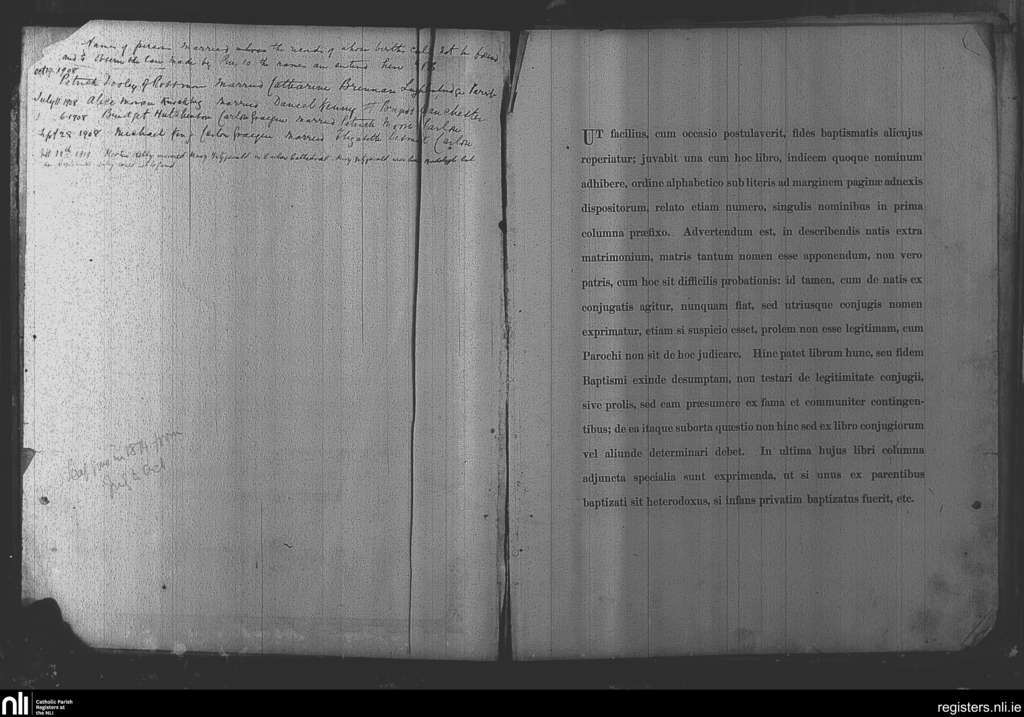 Names of person married whose the records of whose births could not be found
and to whom the
Oct 19 1908
Patrick Dooley of Rossmore married Catharine Brennan Parish
July 11 1908 Alice Moran married Daniel Manchester
6 1908 Bridget Hutchinson Carlow Graigue married Patrick Moore Carlow
Sept 28 1908 Michael King Carlow Graigue married Elizabeth Carlow
1919 Kelly married Mary Fitzgerald in Carlow Cathedral. Mary Fitzgerald was born but
Leaf in 1874 from
July to Oct
UT facilius, cum occasio postulaverit, fides baptismatis alicujus
reperiatur; juvabit una cum hoc libro, indicem quoque nominum
adhibere, ordine alphabetico sub literis ad marginem paginæ adnexis
dispositorum, relato etiam numero, singulis nominibus in prima
columna præfixo. Advertendum est, in describendis natis extra
matrimonium, matris tantum nomen esse apponendum, non vero
patris, cum hoc sit difficilis probationis: id tamen, cum de natis ex
conjugatis agitur, nunquam fiat, sed utriusque conjugis nomen
exprimatur, etiam si suspicio esset, prolem non esse legitimam, cum
Parochi non sit de hoc judicare. Hinc patet librum hunc, seu fidem
Baptismi exinde desumptam, non testari de legitimitate conjugii,
sive prolis, sed eam præsumere ex fama et communiter contingen-
tibus; de ea itaque suborta quæstio non hinc sed ex libro conjugiorum
vel aliunde determinari debet. In ultima hujus libri columna
adjuncta specialia sunt exprimenda, ut si unus ex parentibus
baptizati sit heterodoxus, si infans privatim baptizatus fuerit, etc.
nli Catholic Parish
Registers at
the NLI
registers.nli.ie